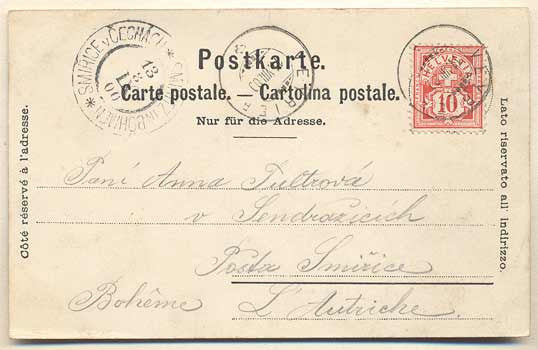 Postkarte.
Carte postale. — Cartolina postale.
Nur für die Adresse.
Côté réservé à l'adresse.
Lato riservato all indirizzo.
SMIŘICE v ČECHÁCH
HELVETIA
10
Paní Anna Pultrová
v Sendražicích
Posta Smiřice
Bohême L'Autriche.